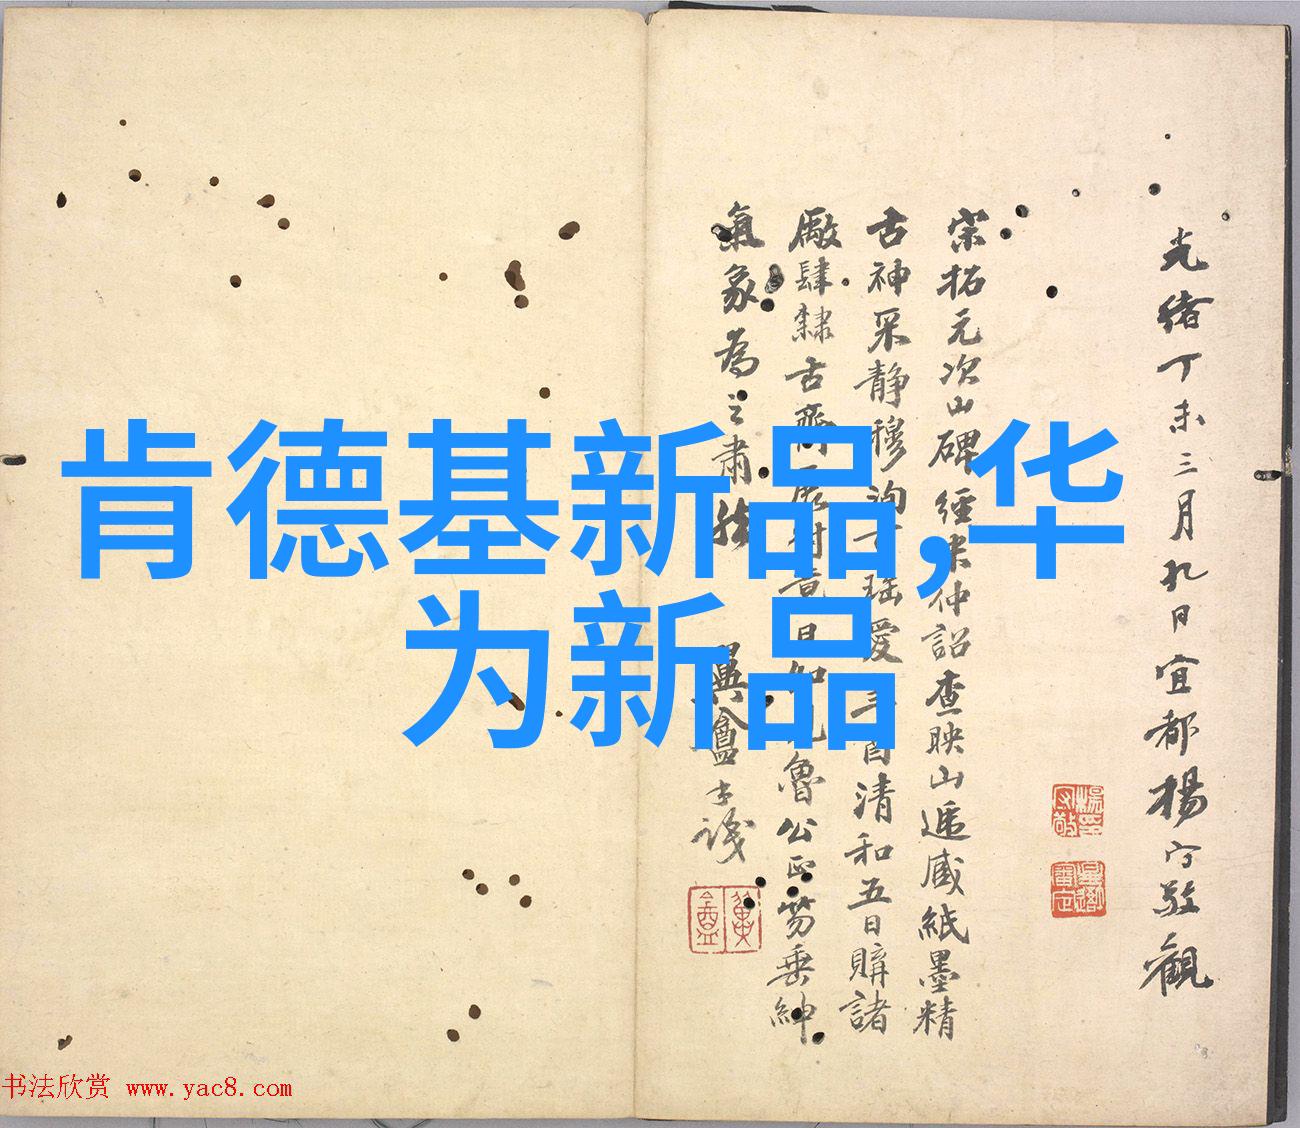 光緒丁未三月九日宜都楊守敬觀
宋拓元次山碑經朱仲詔查映山遞藏紙墨精
古神采靜穆洵可瑶愛辛酉清和五日購諸
廠肆隸古齋
魯公正笏垂紳
氣象為之肅然
書法欣赏 www.yac8.com
肯德基新品,华
为新品